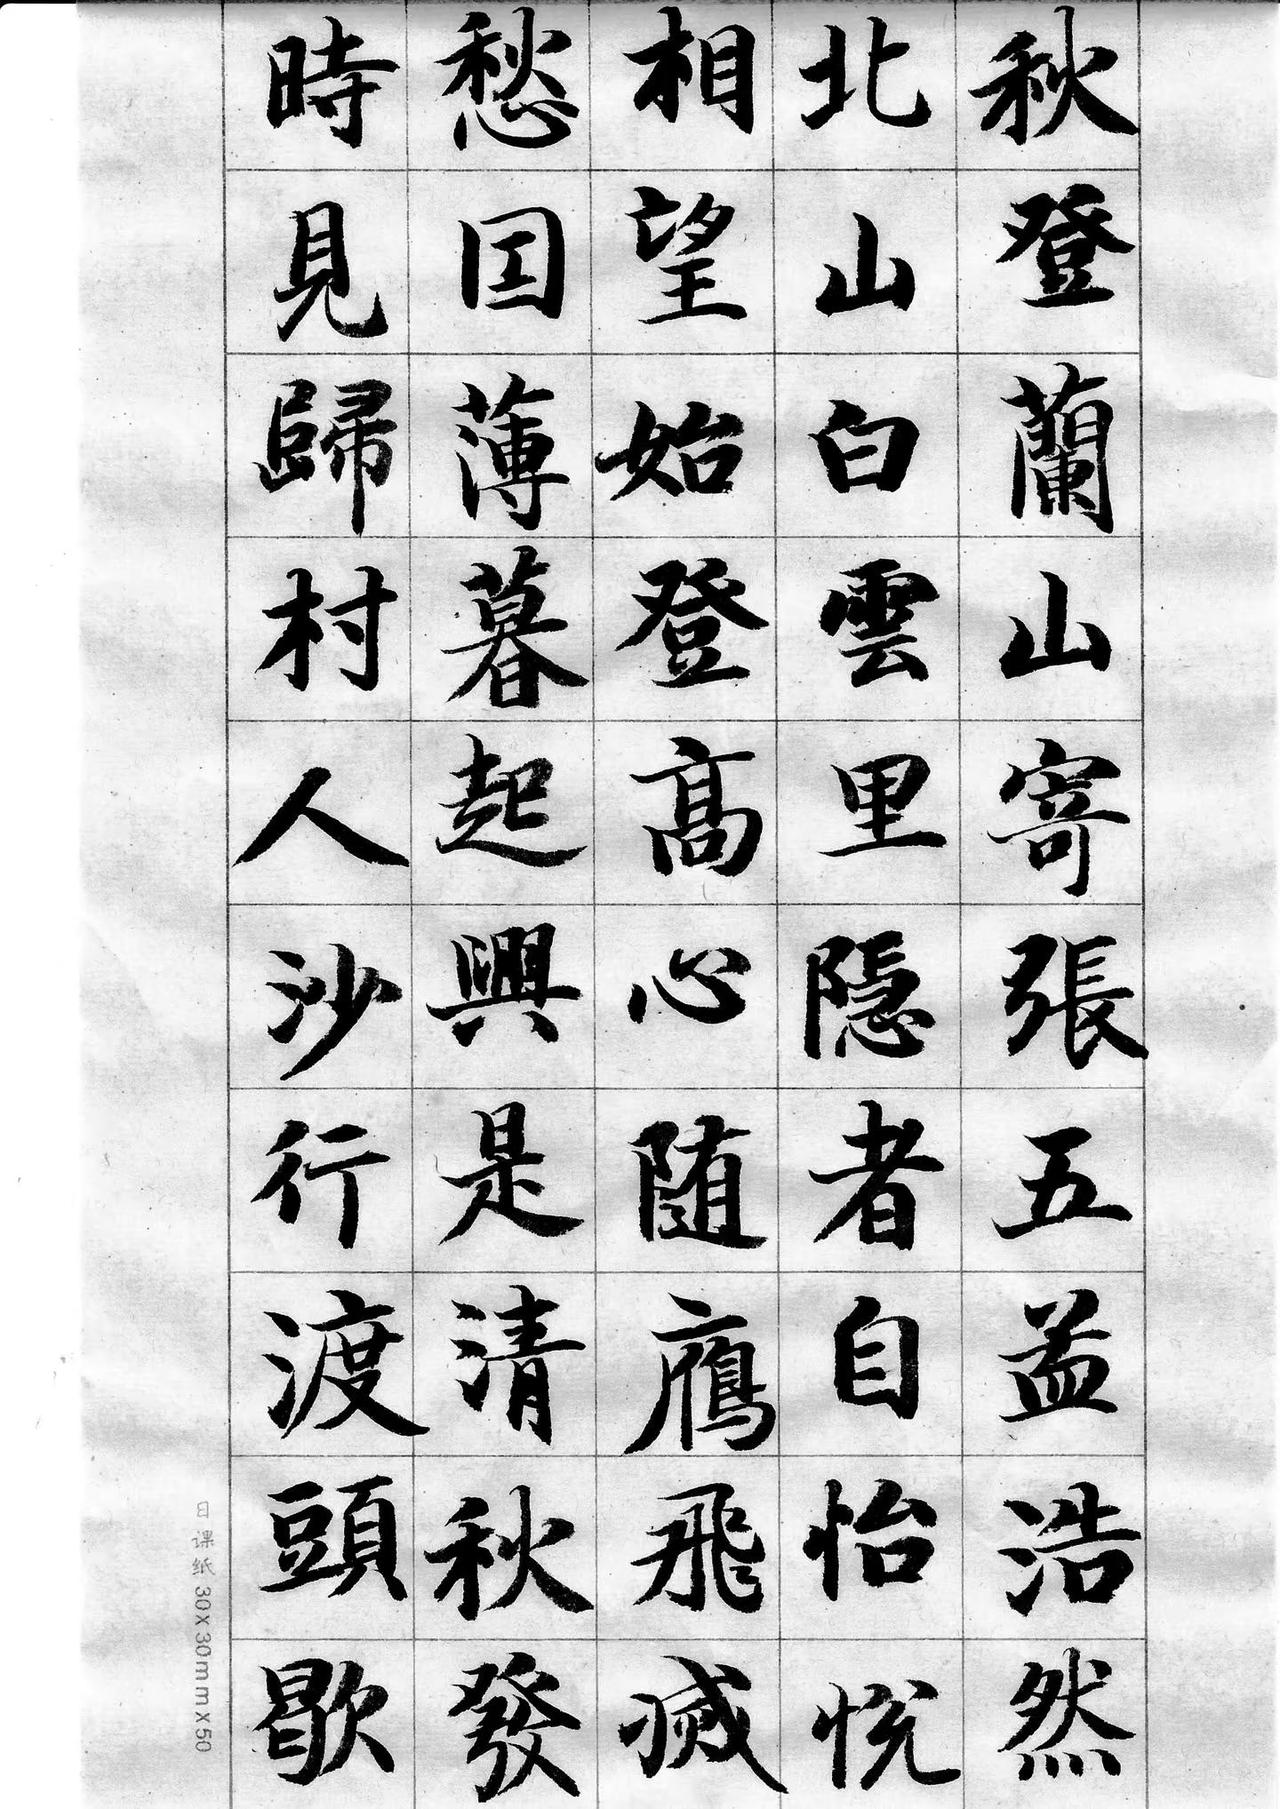 秋登蘭山寄張五孟浩然
北山白雲里隱者自怡悅
相望始登高心随鴈飛滅
愁因薄暮起興是清秋發
時見歸村人沙行渡頭歇
日课纸 30x30mmx50